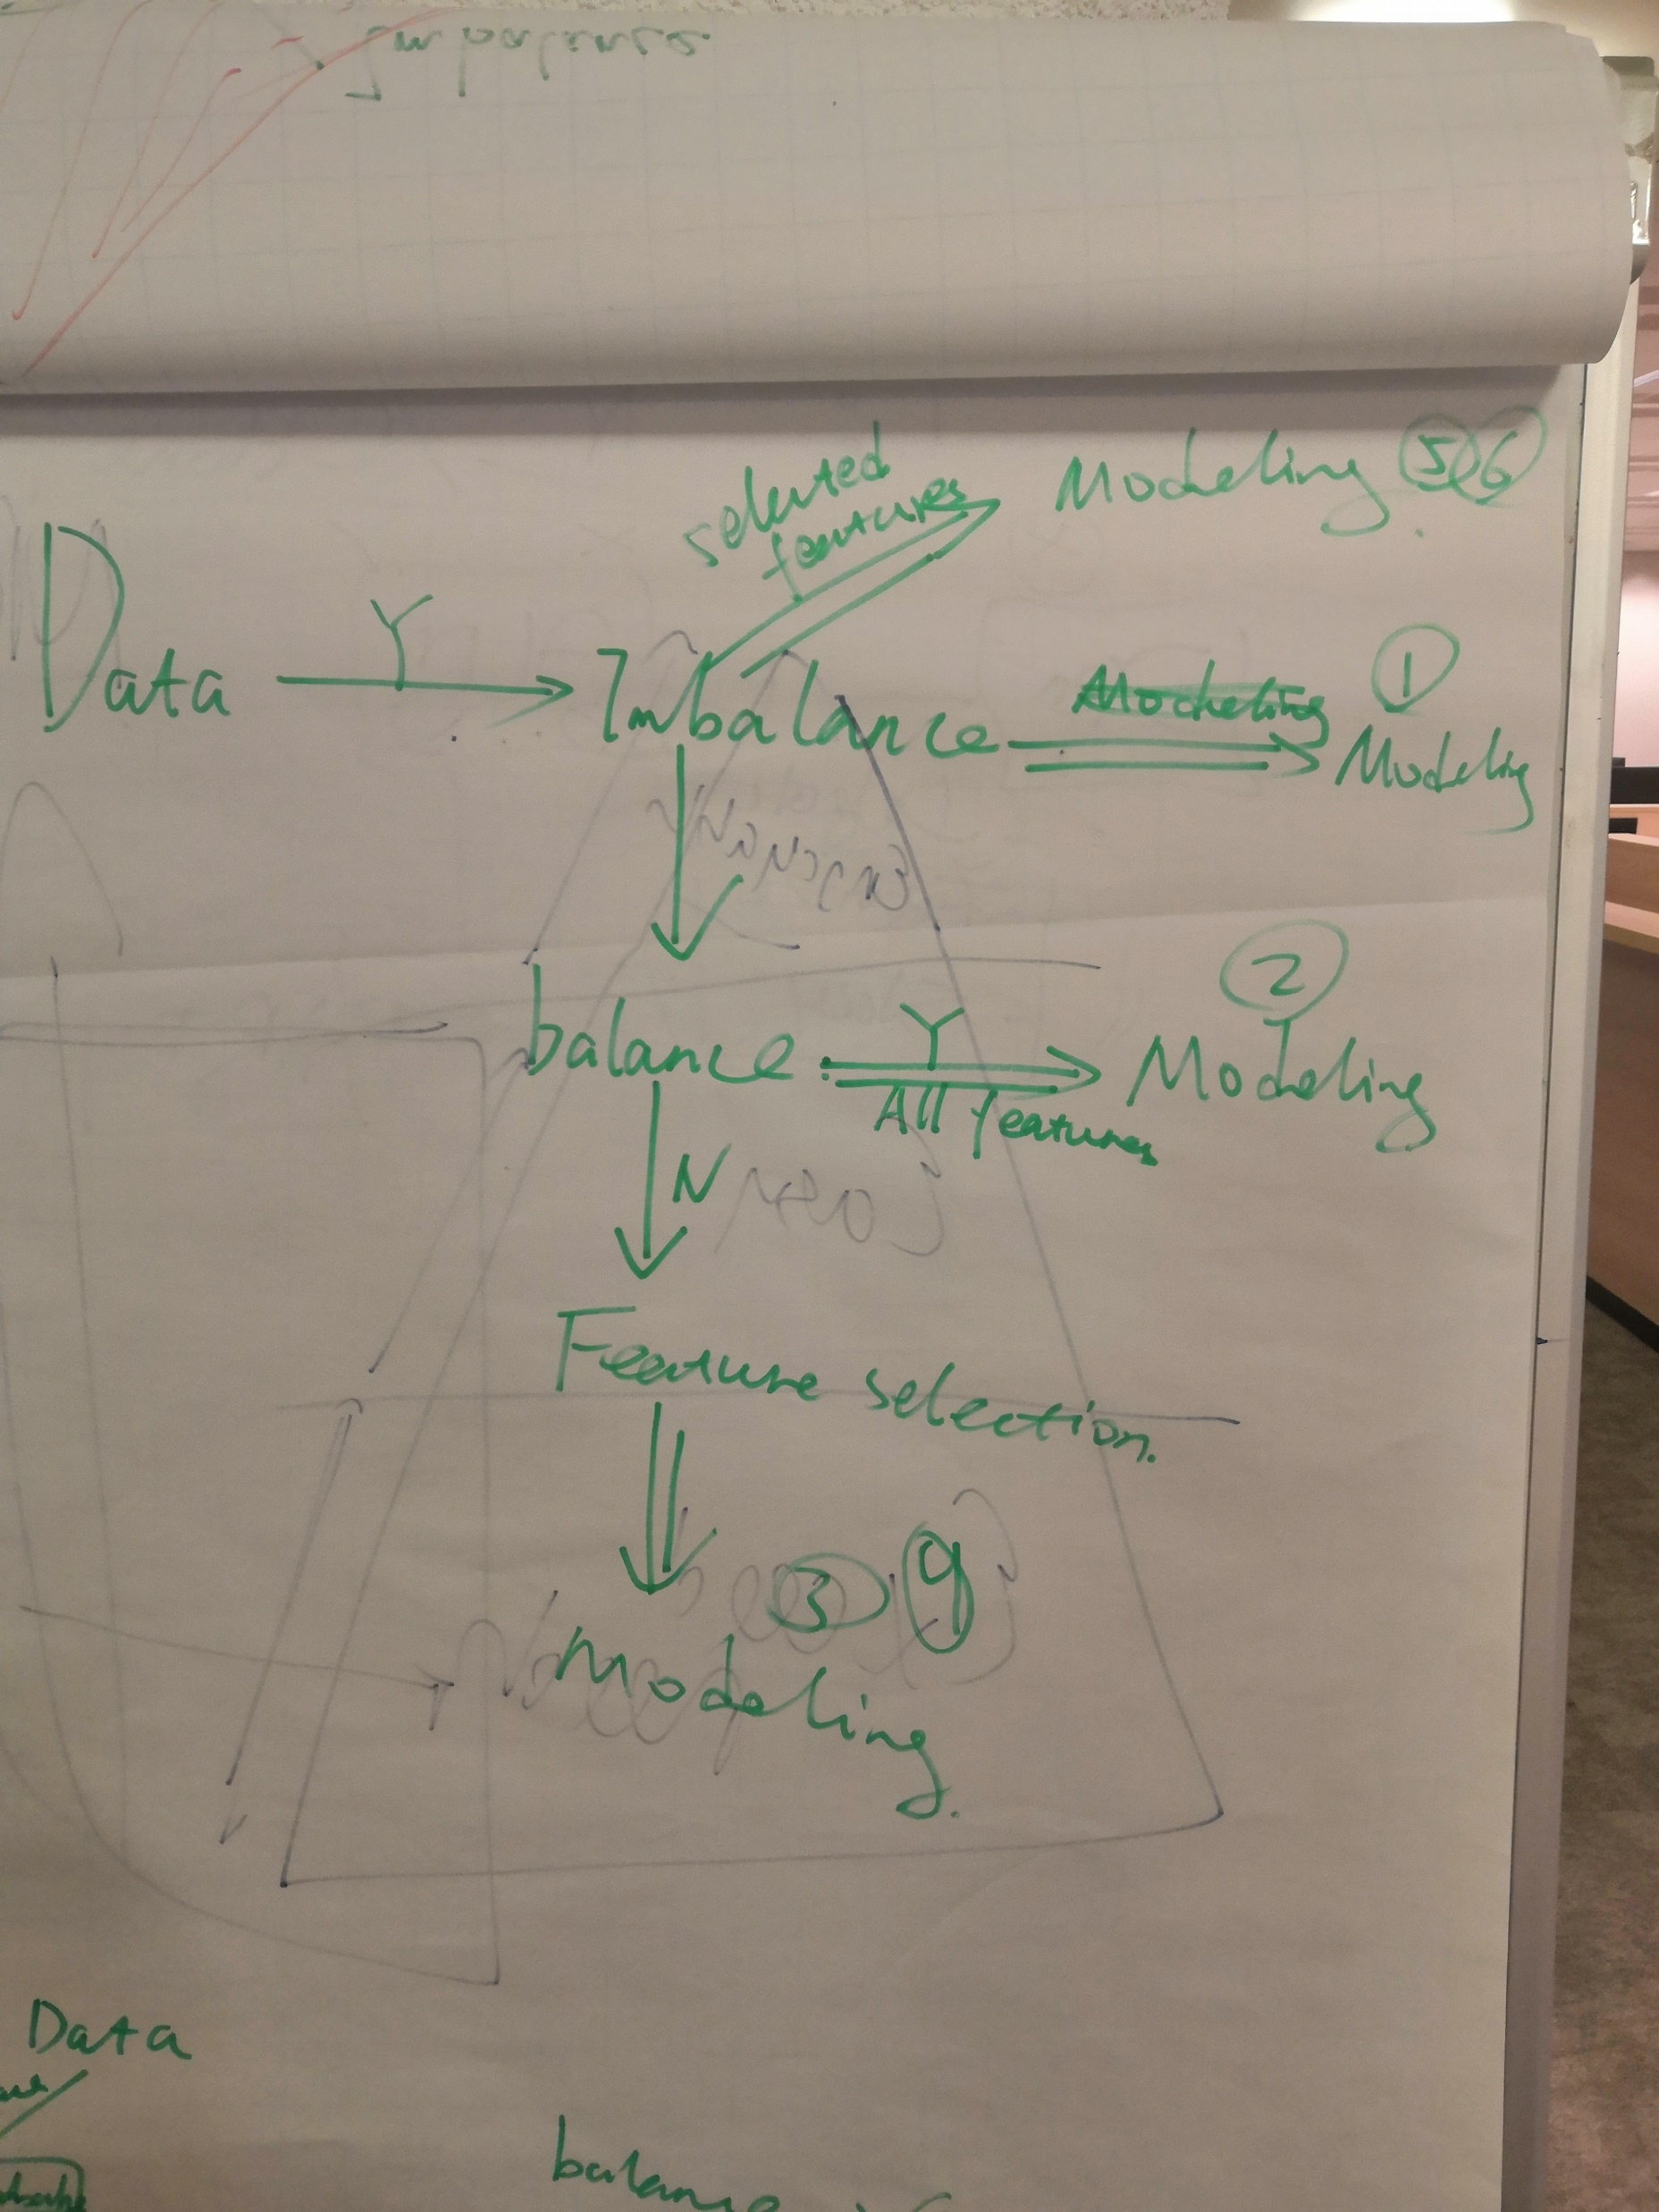 Imbalance
selected
features
Modeling 5 6
Data Y Imbalance Modeling 1
Modeling
balance Y Modeling 2
All features
N
Feature selection.
3 9
Modeling.
Data
balance